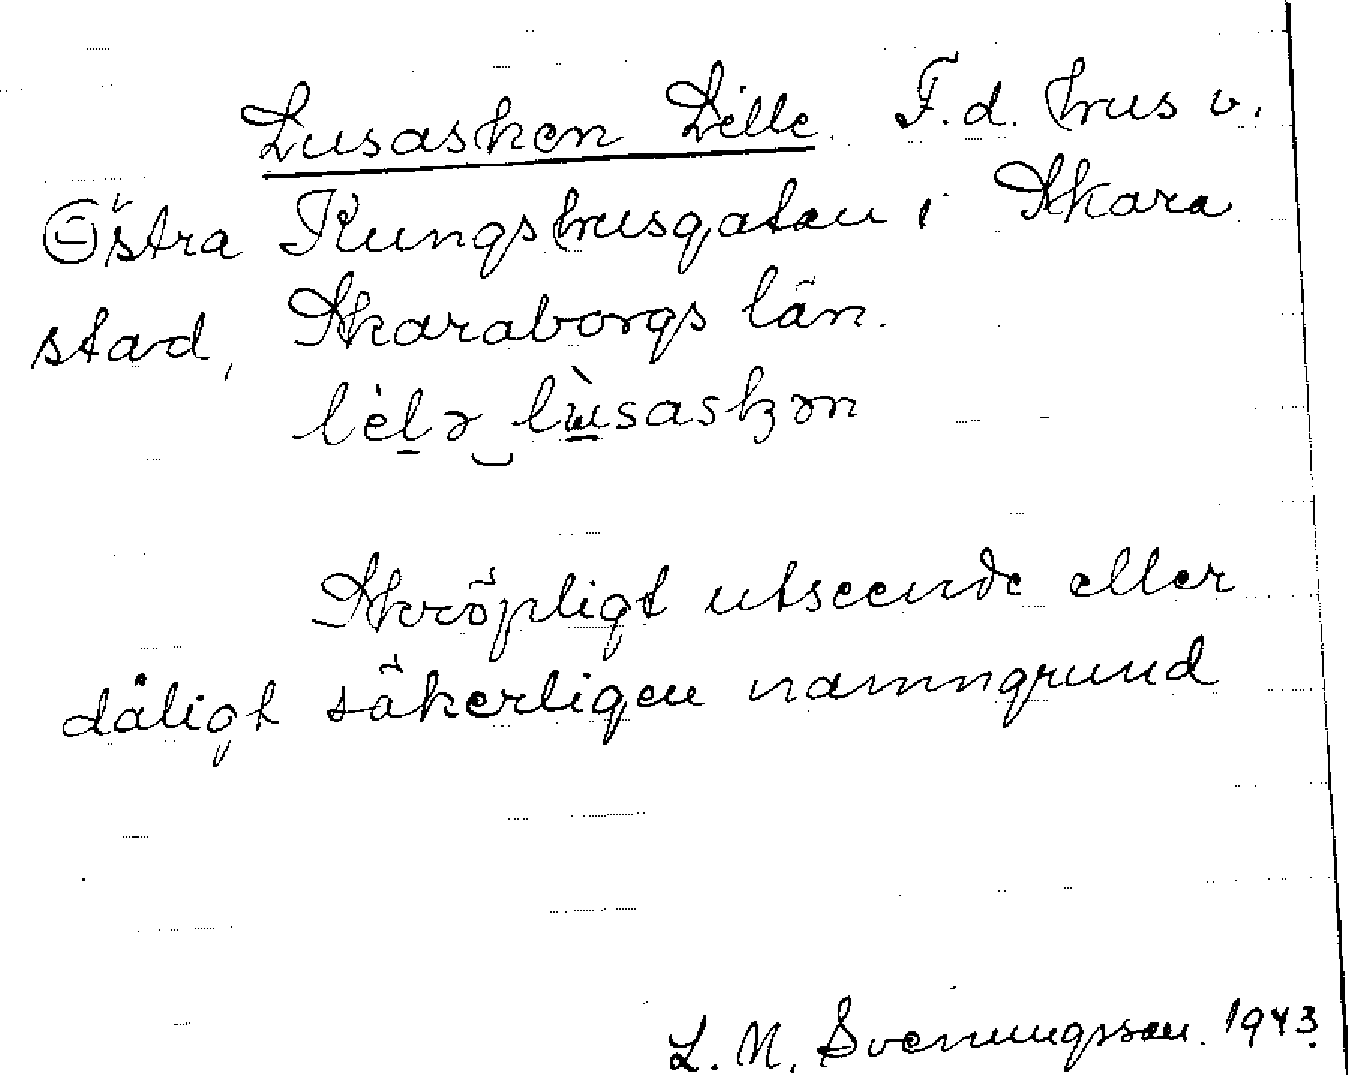 Lusasken Lille. F.d. hus v.
Östra Kungshusgatan i Skara
stad, Skaraborgs län.
lèlə lùsaskən
Skröpligt utseende eller
dåligt säkerligen namngrund
L. M. Svenungsson. 1943.